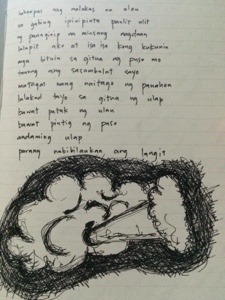 ang malakas na ulan
sa gabing ipinipinta paulit ulit
ng panaginip na minsang nagdaan
lalapit ako at isa isa kong kukunin
mga bituin sa gitna ng puso mo
tanong ang sasambulat sayo
matagal nang naitago ng panahon
lalakad tayo sa gitna ng ulap
bawat patak ng ulan
bawat pintig ng puso
andaming ulap
parang nabibilaukan ang langit